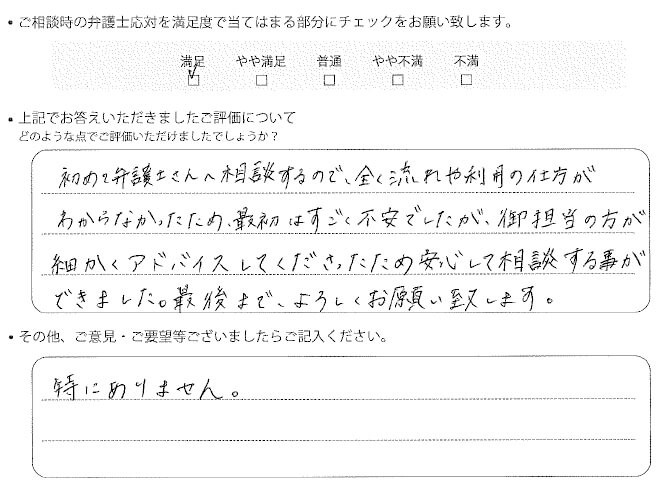 ・ご相談時の弁護士応対を満足度で当てはまる部分にチェックをお願い致します。
満足 やや満足 普通 やや不満 不満
☑ □ □ □ □
・上記でお答えいただきましたご評価について
どのような点でご評価いただけましたでしょうか？
初めて弁護士さんへ相談するので、全く流れや利用の仕方が
わからなかったため、最初はすごく不安でしたが、御担当の方が
細かくアドバイスしてくださったため安心して相談する事が
できました。最後まで、よろしくお願い致します。
・その他、ご意見・ご要望等ございましたらご記入ください。
特にありません。